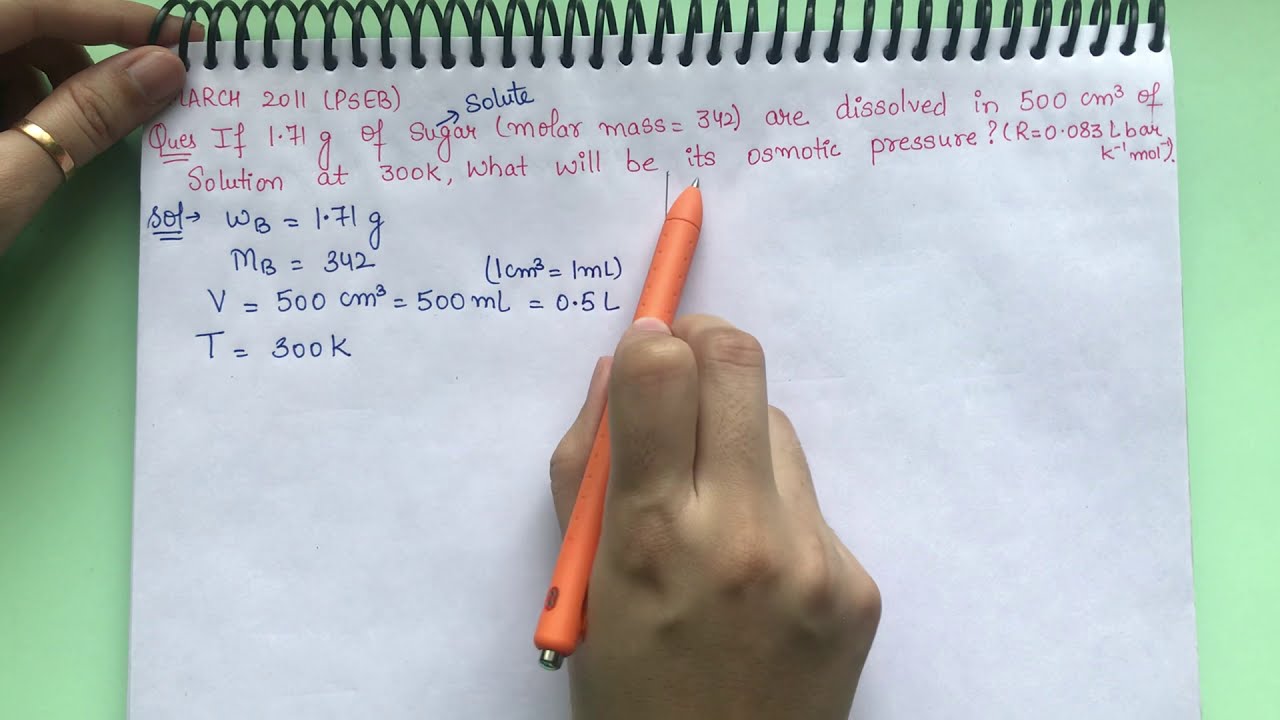 MARCH 2011 (PSEB)
→ Solute
Ques If 1.71 g of sugar (molar mass = 342) are dissolved in 500 cm³ of
Solution at 300K, what will be its osmotic pressure? (R=0.083 L bar
K⁻¹ mol⁻¹).
Sol→ WB = 1.71 g
MB = 342
(1cm³ = 1mL)
V = 500 cm³ = 500 mL = 0.5 L
T = 300 K